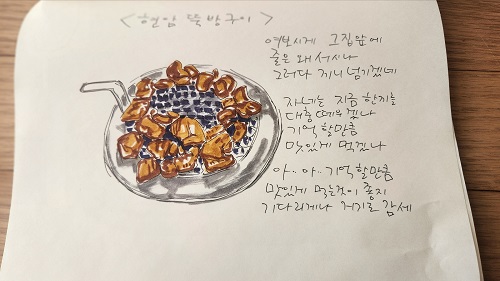 <현암 뜰방구이>
여보시게 그집앞에
줄은 왜 서시나
그러다 끼니 넘기겠네
자네는 지금 한끼를
대충 때우겠나
기억 할만큼
맛있게 먹겠나
아.. 아.. 기억할만큼
맛있게 먹는것이 좋지
기다리게나 거기로 감세